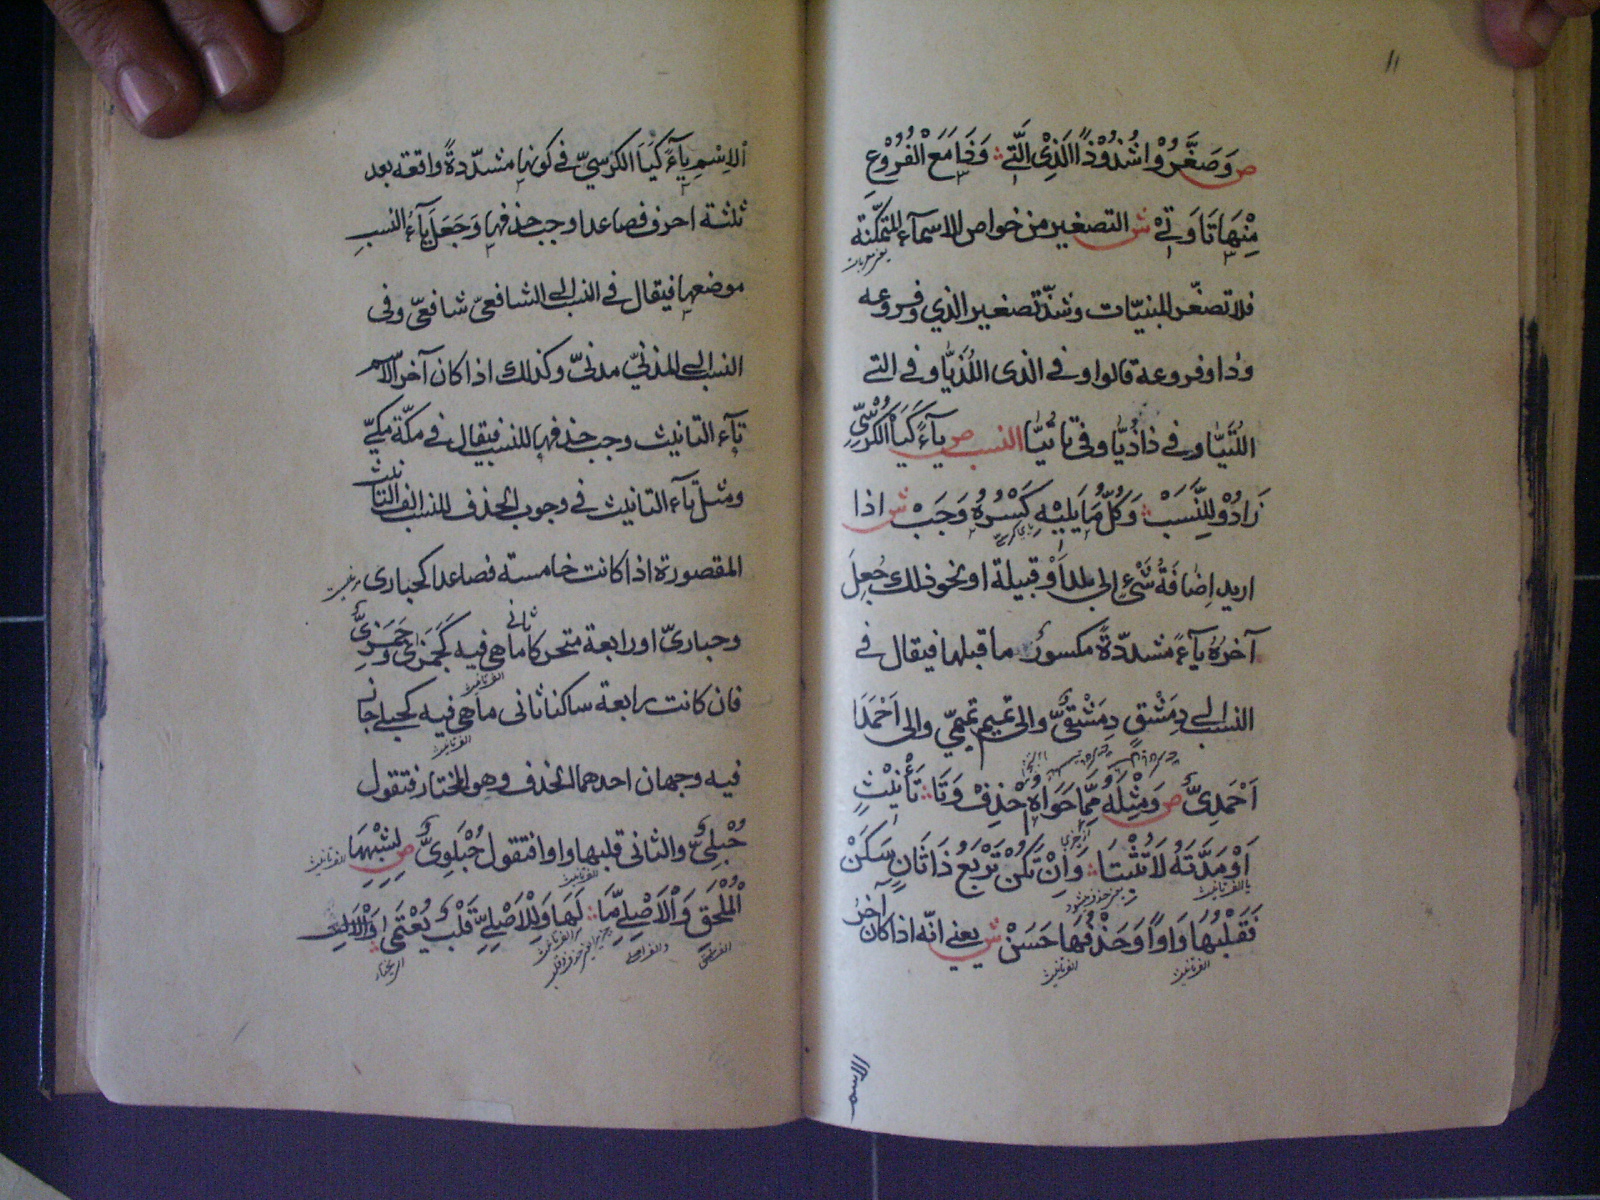 ص وَصَغَّرُوْا شُذُوْذًا الَّذِىْ الَّتِى وَذَا مَعَ الْفُرُوْعِ
مِنْهَا تَا وَتِىْ ش التصغير من خواص الاسمآء المتمكّنة
فلا تصغّر المبنيّات وشذّ تصغير الذي وفروعه
وذا وفروعه قالوا وفى الذى اللُّذَيَّا وفى التى
اللُّتَيَّا وفى ذا ذُيَّا وفى تا تُيَّا النسب ص يآءً كَيَا الْكُرْسِيّ
زَادُوْ لِلنَّسَبْ وَكُلُّ مَا يَلِيْهِ كَسْرُهُ وَجَبْ ش اذا
اريد اِضَافَةُ شَىْءٍ الى بلد اَوْ قبيلة او نحو ذلك جُعِلَ
آخرُهُ يآءً مشدّدةً مكسورً ما قبلها فيقال فى
النسب الى دِمَشْقٍ دِمَشْقِىٌّ والى تميم تميمىّ والى اَحْمَدَا
اَحْمَدِىٌّ ص وَمِثْلَهُ مِمَّا حَوَاهُ احْذِفْ وَتَا تَأْنِيْثٍ
اَوْ مَدَّتَهُ لَا تُثْبِتَا وَاِنْ تَكُنْ تَرْبَعُ ذَا ثَانٍ سَكَنْ
فَقَلْبُهَا وَاوًا وَحَذْفُهَا حَسَنْ ش يعنى انّه اذا كان آخرُ
الاسم
الاِسْمِ يآءً كَيَا الكرسىّ فى كونها مشدّدةً واقعه بعد
ثلثة احرف فصاعدا وجب حذفها وَجَعَلَ يآءُ النسب
موضعها فيقال فى النسب الى الشافعىّ شافعىّ وفى
النسب الى المدنىّ مدنىّ وكذلك اذا كان آخر الاسم
تآء التانيث وجب حذفها للنسب فيقال فى مكّة مكىّ
ومثل تآء التانيث فى وجوب الحذف للنسب الف التانيث
المقصورة اذا كانت خامسة فصاعدا كحبارى
وحبارىّ او رابعة متحركا ثانى ما هى فيه كَجَمَزَى وجَمَزِىٌّ
فان كانت رابعة ساكنا ثانى ما هى فيه كحبلى جاز
فيه وجهان احدهما الحذف وهو المختار فتقول
حُبْلِىٌّ والثانى قلبها واوا فتقول حُبْلَوِىٌّ ص لِشِبْهِهَا
الْمُلْحَقِ وَالْاَصْلِىِّ مَا لَهَا وَلِلْاَصْلِىِّ قَلْبٌ يُعْتَمَى وَالْاَلِفَ